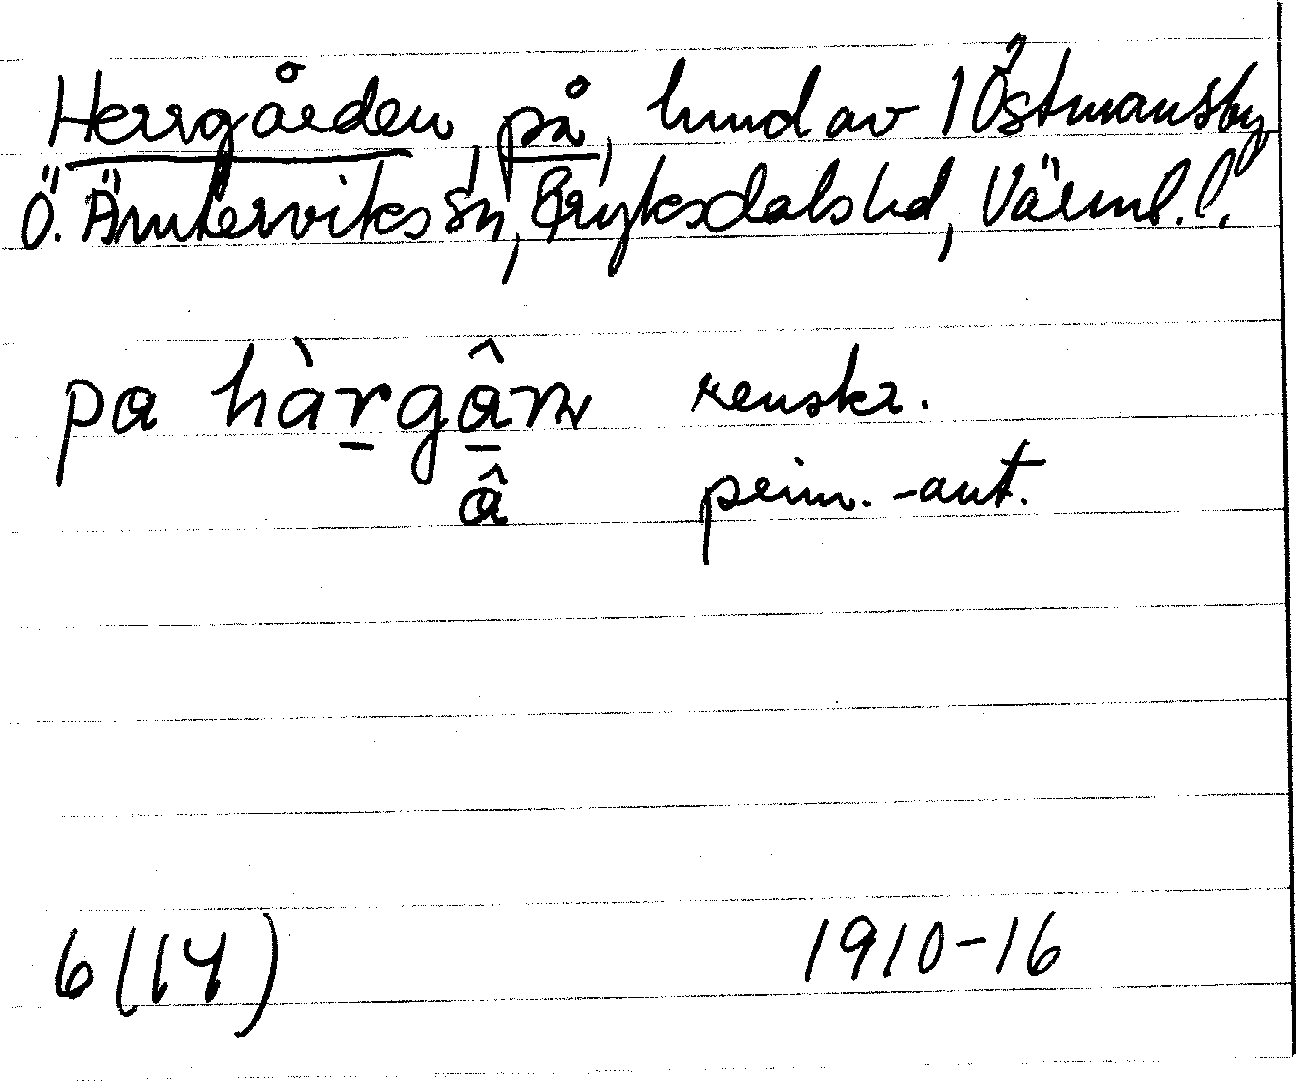 Herrgården, på, hmd av 1 Östmansby
Ö. Ämterviks sn, Fryksdals hd, Värml. l.
pa hàrgân renskr.
â prim.-ant.
6 (14) 1910-16